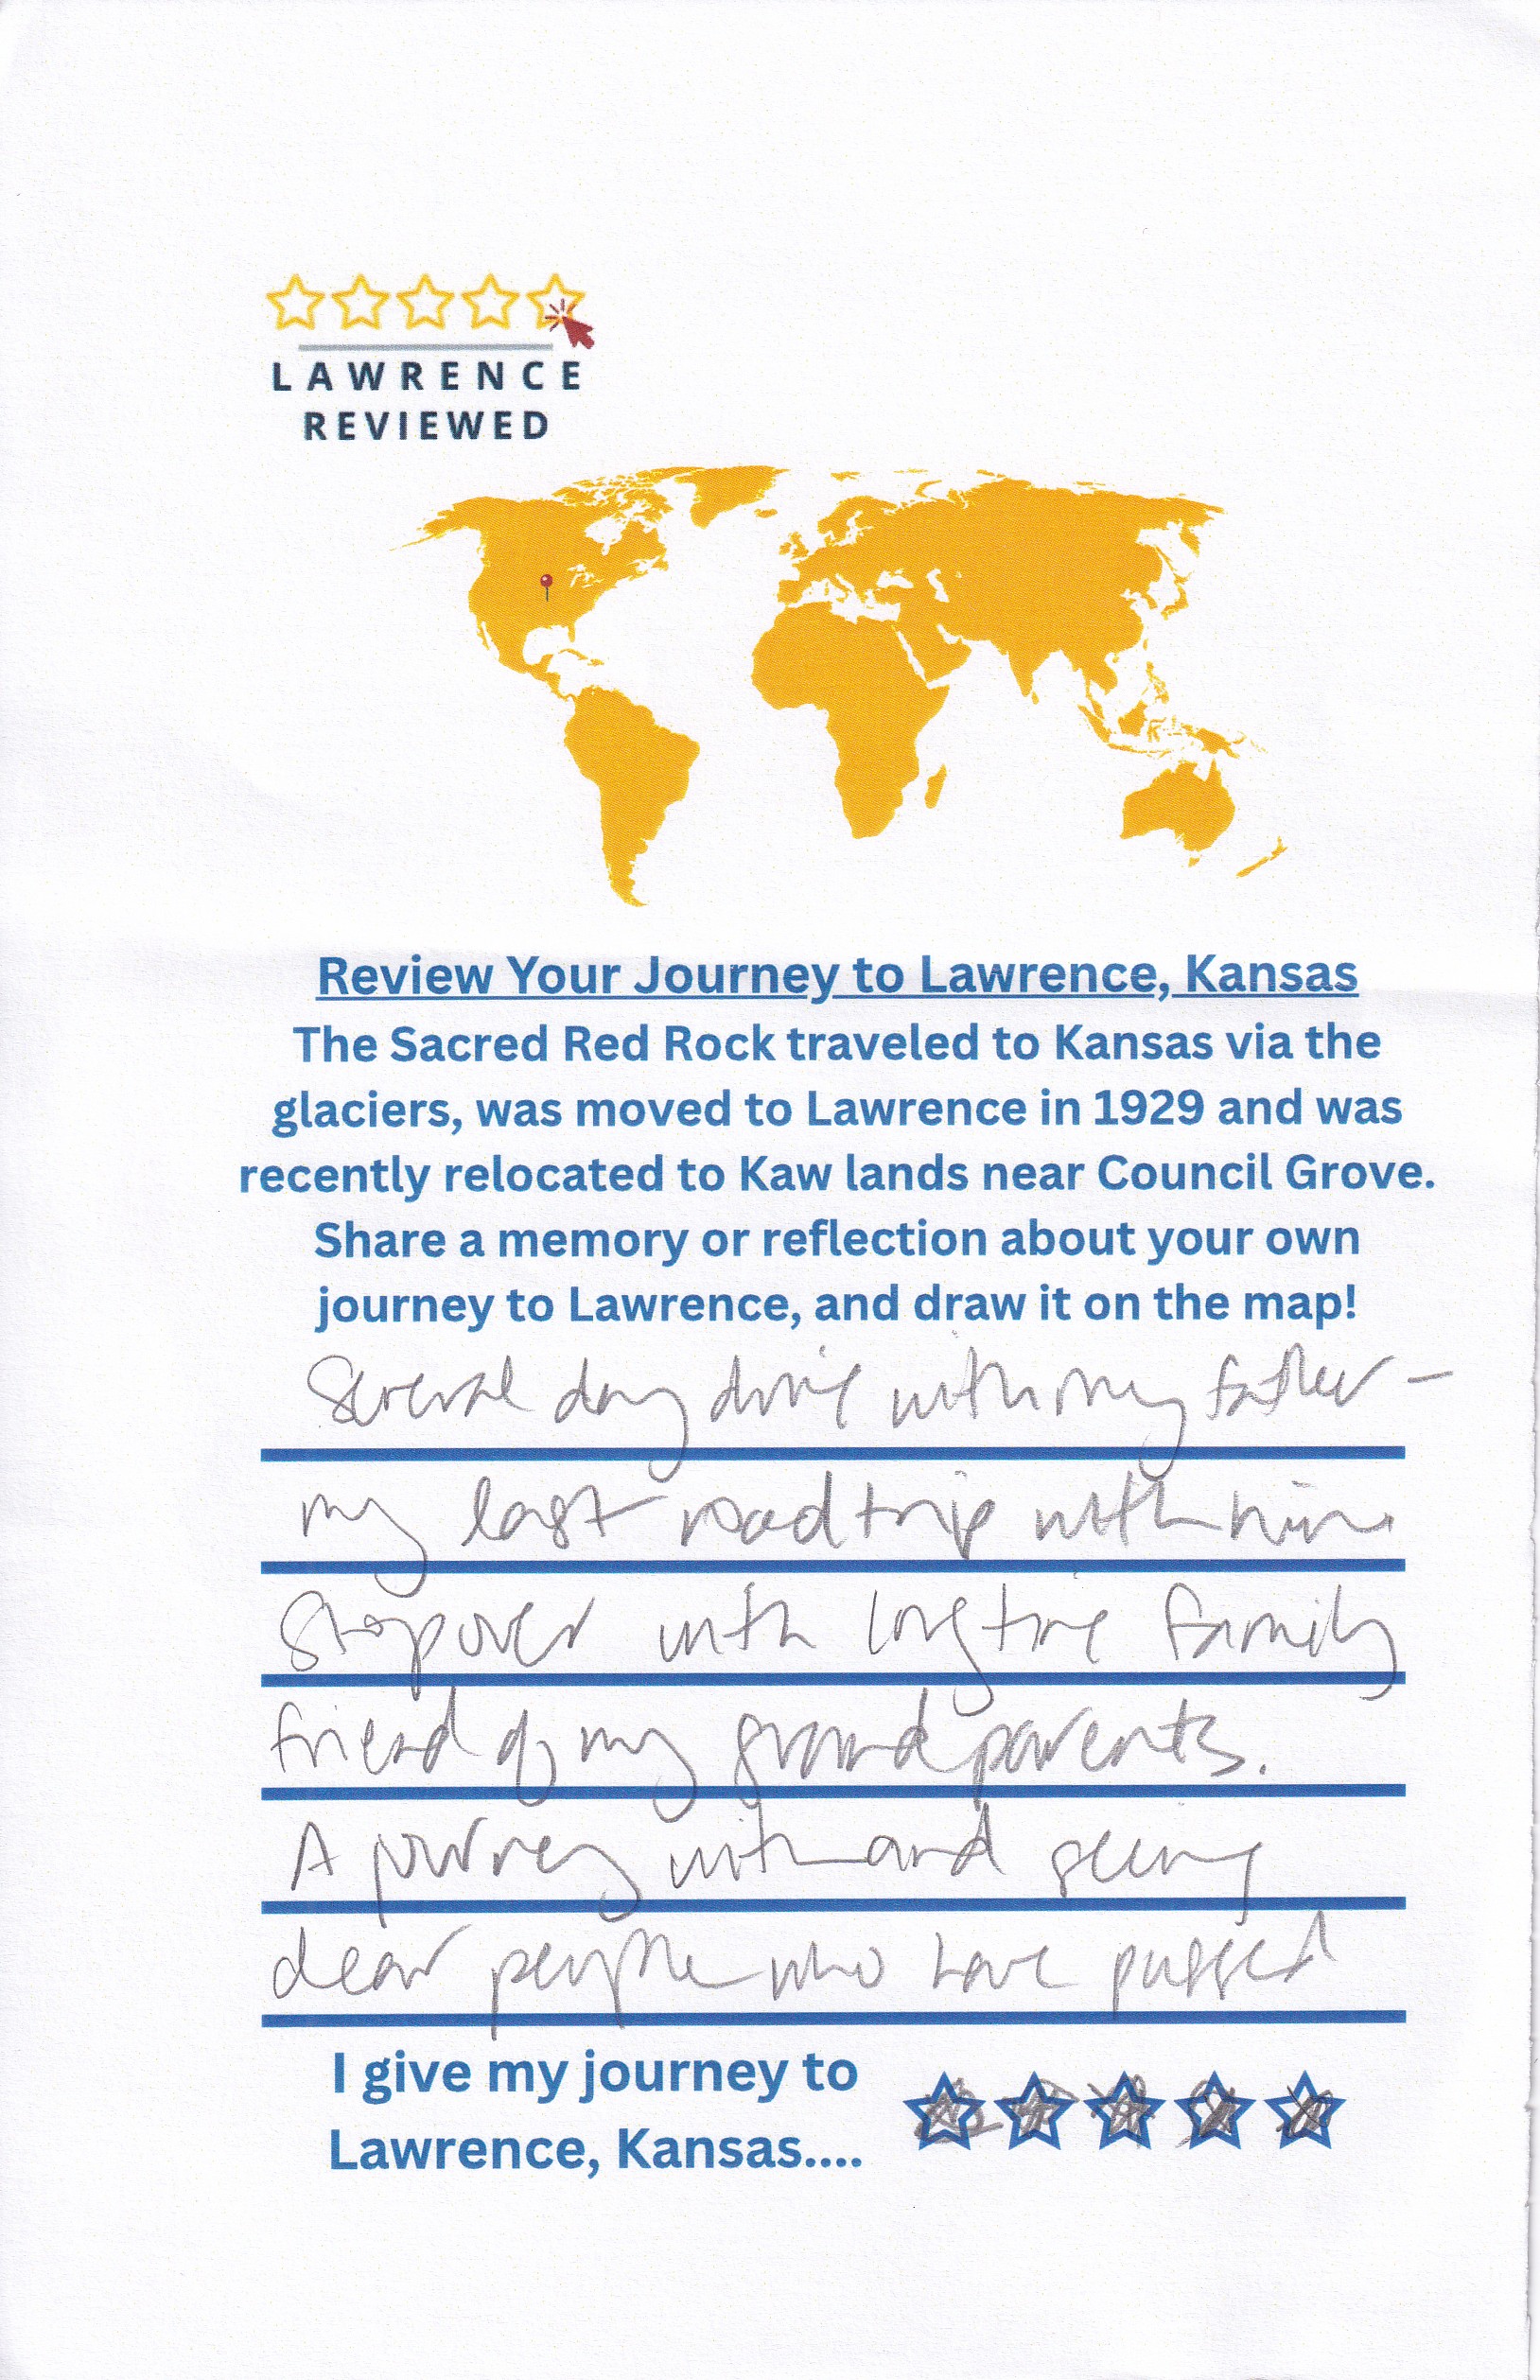 LAWRENCE
REVIEWED
Review Your Journey to Lawrence, Kansas
The Sacred Red Rock traveled to Kansas via the
glaciers, was moved to Lawrence in 1929 and was
recently relocated to Kaw lands near Council Grove.
Share a memory or reflection about your own
journey to Lawrence, and draw it on the map!
Several day drive with my father –
my last road trip with him
Stopover with longtime family
friend of my grandparents.
A journey with and seeing
dear people who have passed
I give my journey to
Lawrence, Kansas....